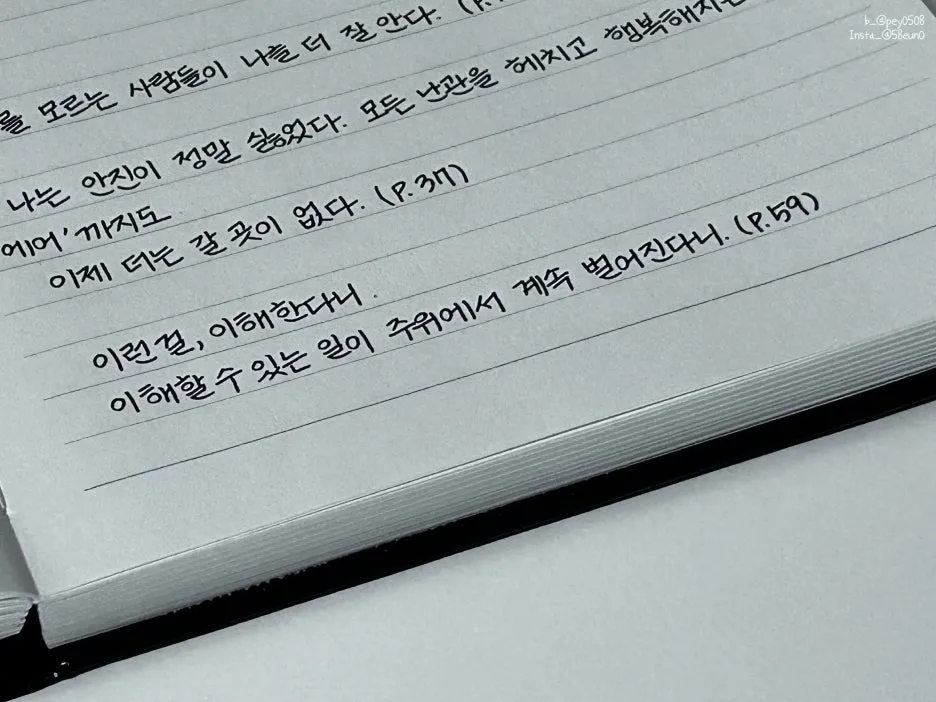 b_@pey0508
Insta_@58eun0
를 모르는 사람들이 나를 더 잘 안다. (P.
나는 안진이 정말 싫었다. 모든 난관을 헤치고 행복해지는
에어' 까지도
이제 더는 갈 곳이 없다. (P.37)
이런 걸, 이해한다니.
이해할 수 있는 일이 주위에서 계속 벌어진다니. (P.59)